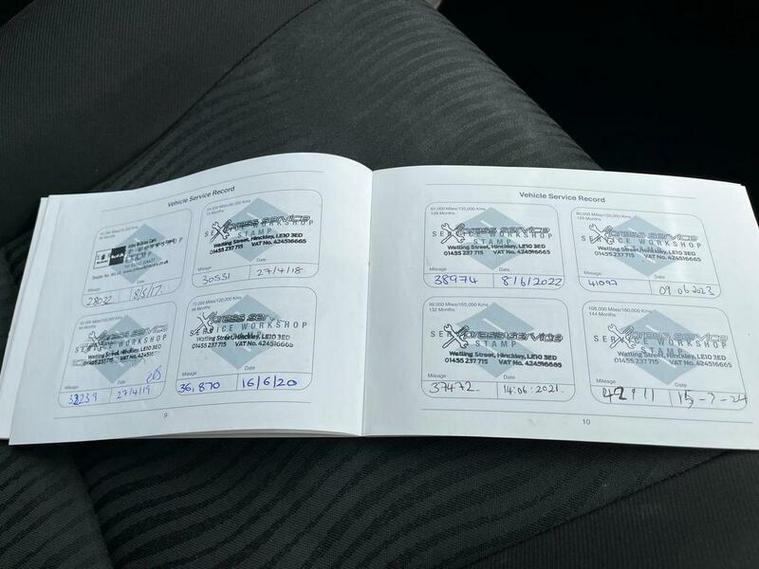 Vehicle Service Record
28022
18/5/17
Xpress service
SERVICE WORKSHOP
Watling Street, Hinckley, LE10 3ED
01455 237 715 VAT No. 424516665
Mileage
Date
30551
27/4/18
Watling Street, Hinckley, LE10 3ED
01455 237 715 VAT No. 424516665
Mileage
Date
33239
27/4/19
SERVICE WORKSHOP
STAMP
Watling Street, Hinckley, LE10 3ED
01455 237 715 VAT No. 424516665
Mileage
Date
36,870
16/6/20
9
Vehicle Service Record
Xpress service
SERVICE WORKSHOP
STAMP
Watling Street, Hinckley, LE10 3ED
01455 237 715 VAT No. 424516665
Mileage
Date
38974
8/6/2022
Xpress service
SERVICE WORKSHOP
Watling Street, Hinckley, LE10 3ED
01455 237 715 VAT No. 424516665
Mileage
Date
41097
09 06 2023
Xpress service
STAMP
Watling Street, Hinckley, LE10 3ED
01455 237 715 VAT No. 424516665
Mileage
Date
37472
14.06.2021
Xpress service
SERVICE WORKSHOP
STAMP
Watling Street, Hinckley, LE10 3ED
01455 237 715 VAT No. 424516665
Mileage
Date
42911
15-7-24
10